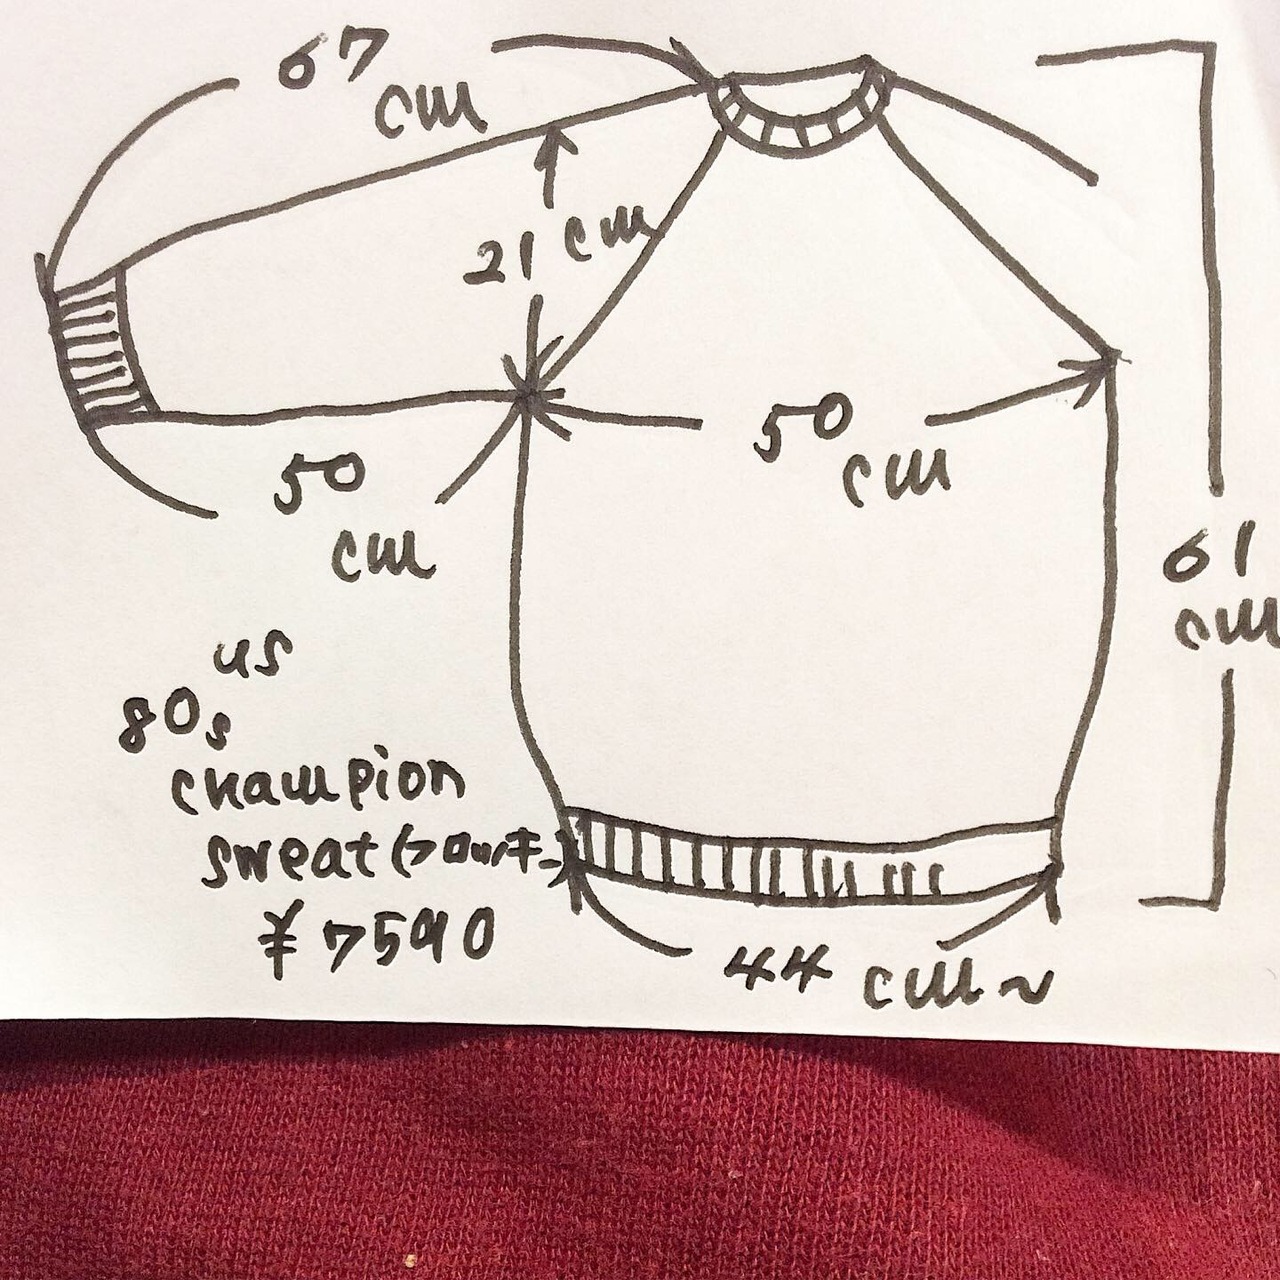 67
cm
21 cm
50
cm
50
cm
61
cm
us
80s
champion
sweat (フロッキー)
¥7590
44 cm~